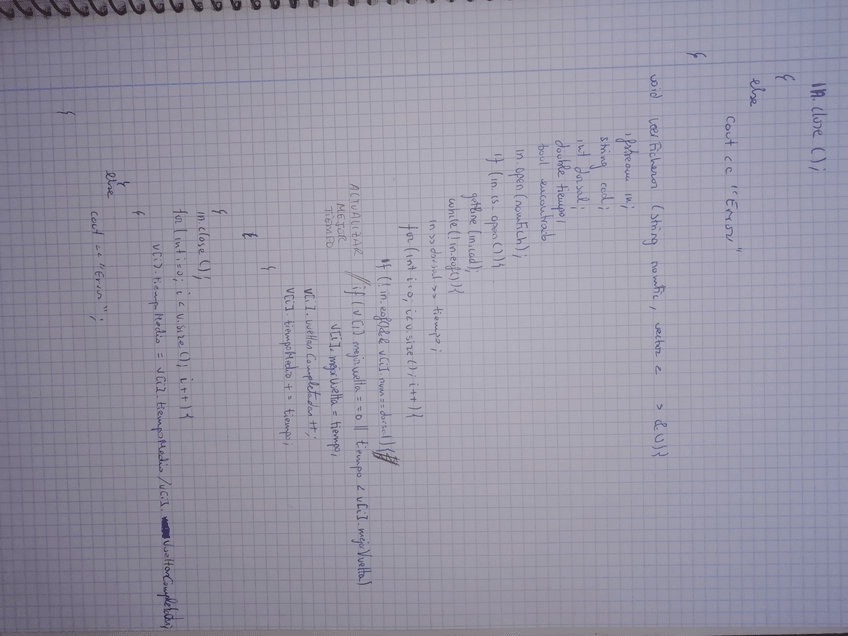 in.close();
}
else
cout << "Error"
}
void leerFicheros (string nomfic, vector < > &v){
ifstream in;
string cad;
int dorsal;
double tiempo;
bool encontrado
in open(nomfich);
if (in.is_open()){
getline (in,cad);
while(!in.eof()){
in>>dorsal >> tiempo;
for(int i=0; i<v.size(); i++){
if (!in.eof() && v[i].num==dorsal){
ACTUALIZAR MEJOR TIEMPO // if (v[i].mejorVuelta==0 || tiempo < v[i].mejorVuelta)
v[i].mejorVuelta = tiempo;
v[i].vueltasCompletadas++;
v[i].tiempoMedio += tiempo;
}
}
}
in.close();
for(int i=0; i<v.size(); i++){
v[i].tiempoMedio = v[i].tiempoMedio / v[i].vueltasCompletadas;
}
}
else
cout << "Error";
}